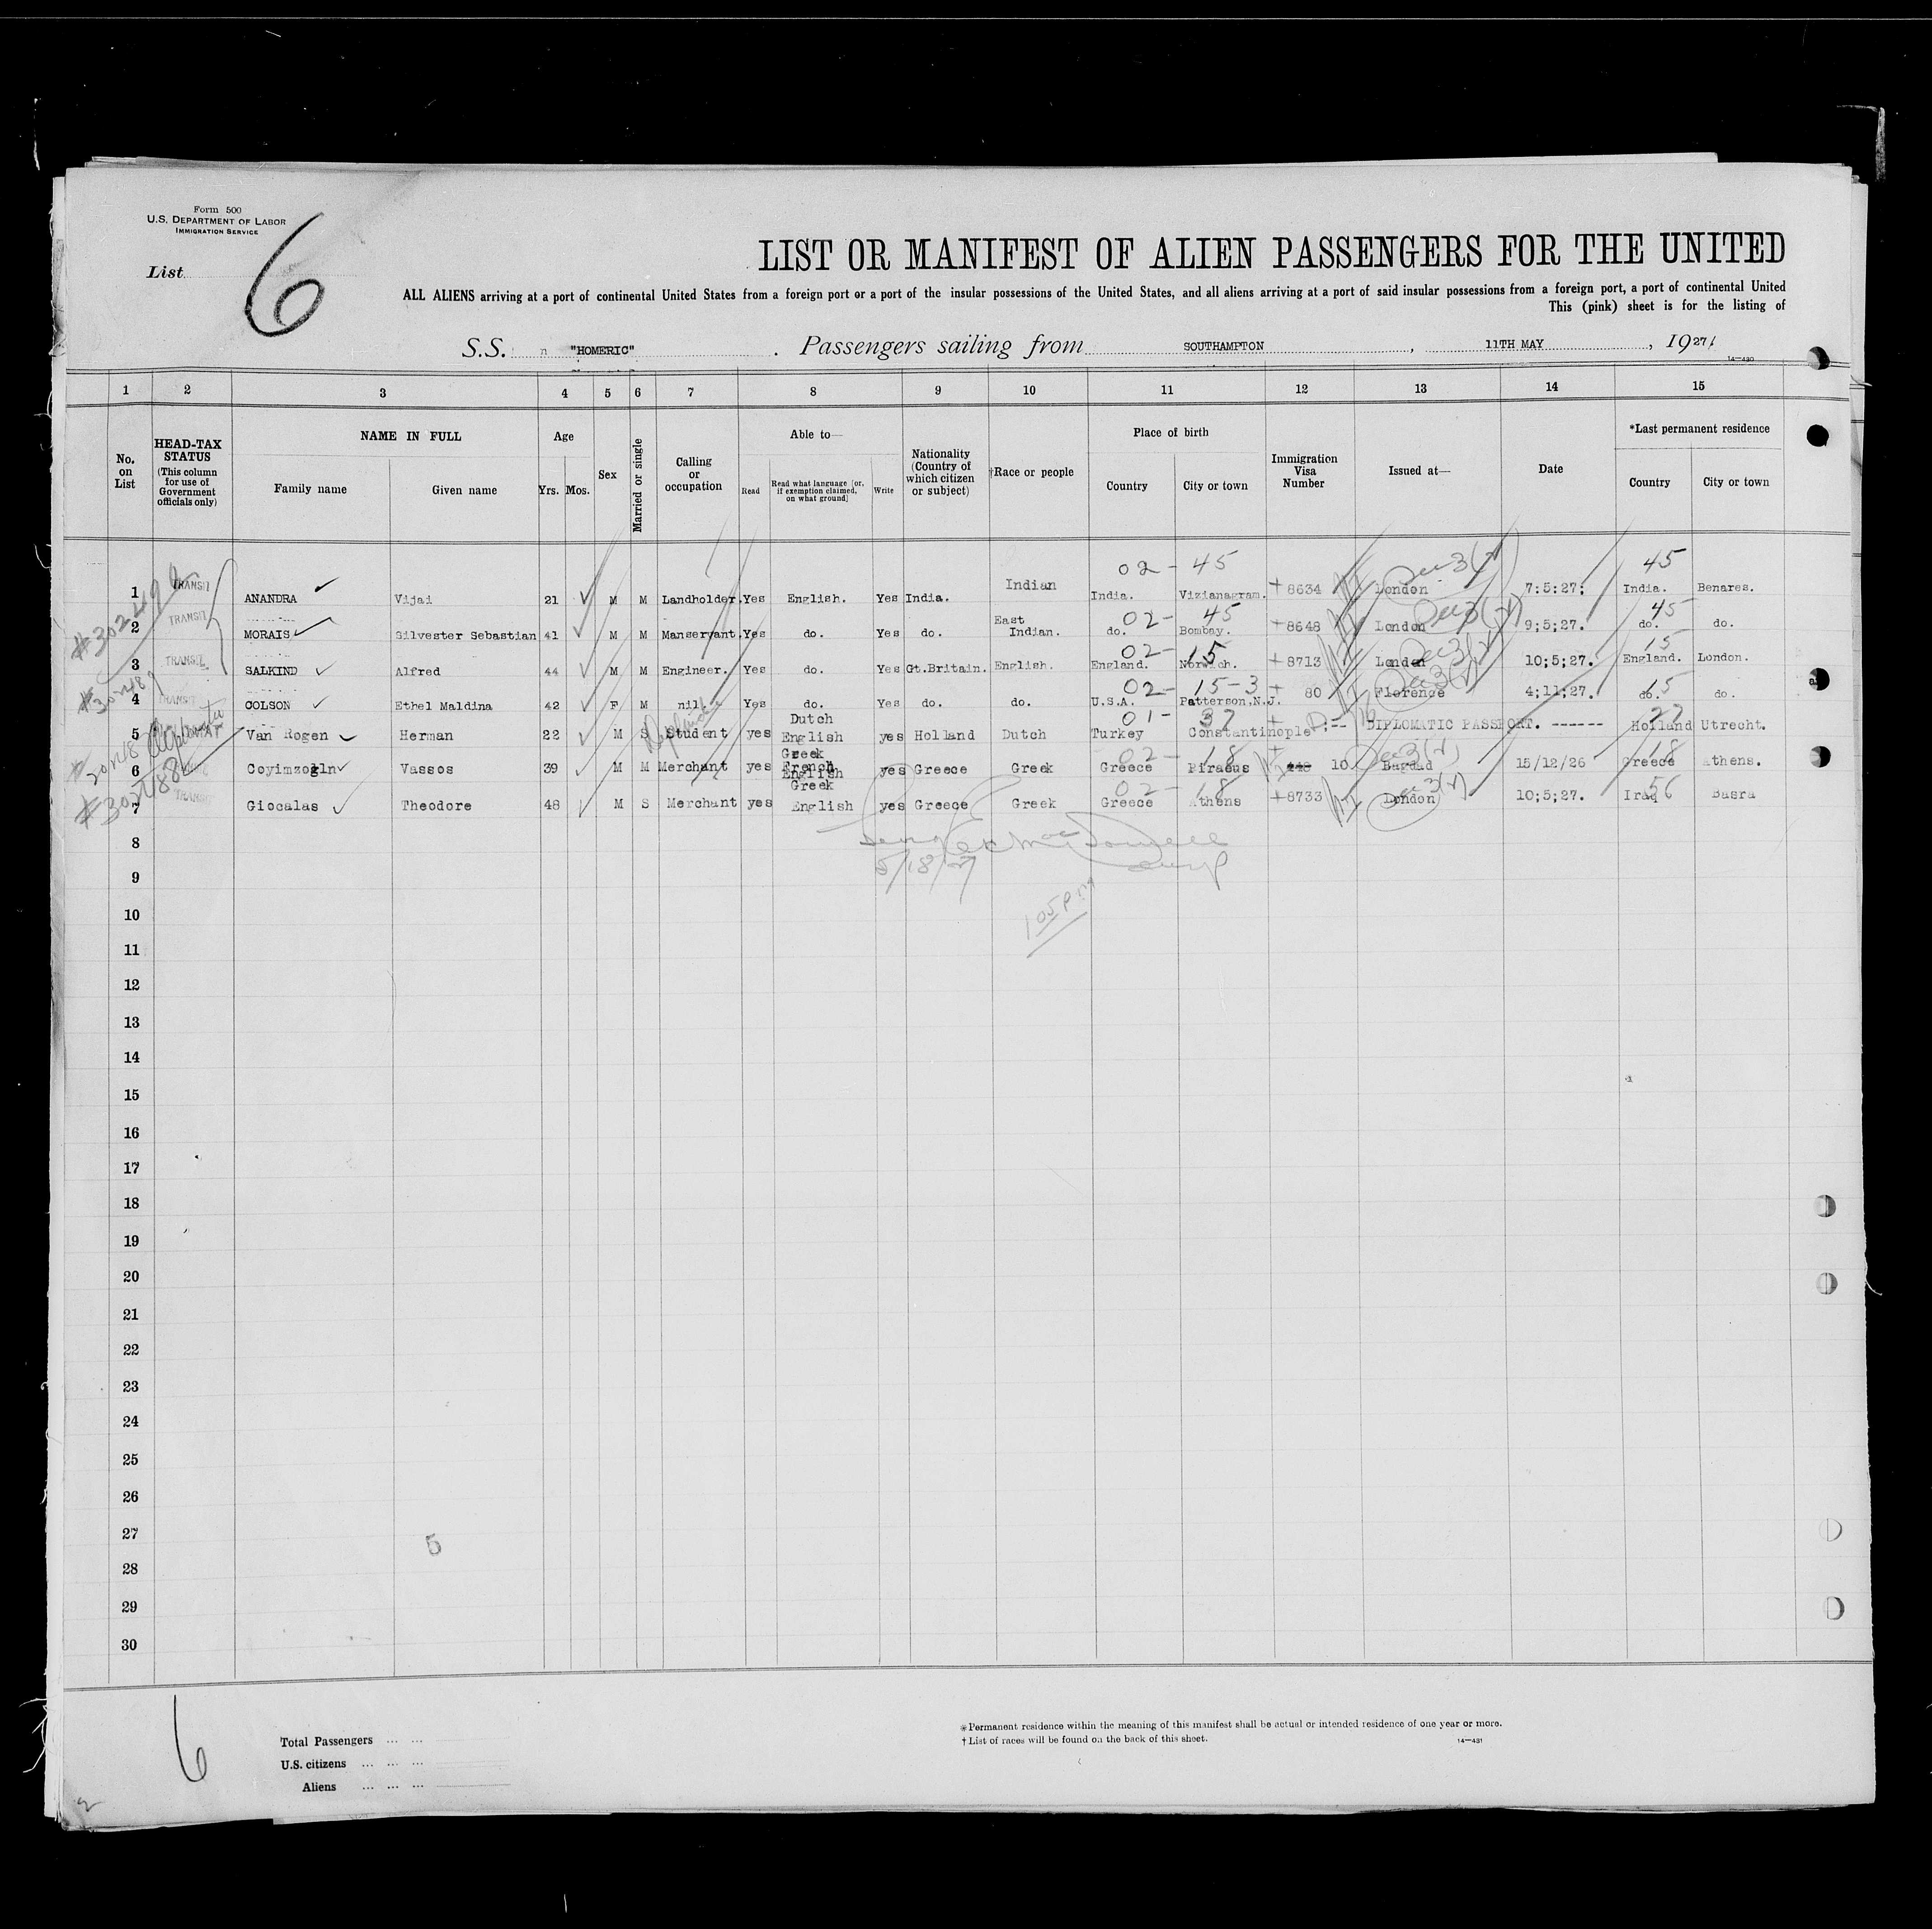 Form 500
U.S. DEPARTMENT OF LABOR
IMMIGRATION SERVICE
List 6
LIST OR MANIFEST OF ALIEN PASSENGERS FOR THE UNITED
ALL ALIENS arriving at a port of continental United States from a foreign port or a port of the insular possessions of the United States, and all aliens arriving at a port of said insular possessions from a foreign port, a port of continental United
This (pink) sheet is for the listing of
S.S. "HOMERIC" . Passengers sailing from SOUTHAMPTON , 11TH MAY , 1927
14—430
1 2 3 4 5 6 7 8 9 10 11 12 13 14 15
No. on List
HEAD-TAX STATUS (This column for use of Government officials only)
NAME IN FULL
Family name Given name
Age
Yrs. Mos.
Sex
Married or single
Calling or occupation
Able to—
Read Read what language [or, if exemption claimed, on what ground] Write
Nationality (Country of which citizen or subject)
†Race or people
Place of birth
Country City or town
Immigration Visa Number
Issued at—
Date
*Last permanent residence
Country City or town
02 - 45 45
1 TRANSIT ANANDRA Vijai 21 M M Landholder. Yes English. Yes India. Indian India. Vizianagram. 8634 London 7:5:27: India. Benares.
02 - 45 45
2 TRANSIT MORAIS Silvester Sebastian 41 M M Manservant. Yes do. Yes do. East Indian. do. Bombay. 8648 London 9;5;27. do. do.
02 - 15 15
3 TRANSIT SALKIND Alfred 44 M M Engineer. Yes do. Yes Gt.Britain. English. England. Norwich. 8713 London 10;5;27. England. London.
02 - 15-3 15
4 TRANSIT COLSON Ethel Maldina 42 F M nil Yes do. Yes do. do. U.S.A. Patterson,N.J. 80 Florence 4;11;27. do. do.
01 - 37 27
5 Van Rogen Herman 22 M S Student yes Dutch English yes Holland Dutch Turkey Constantinople DIPLOMATIC PASSPORT. ------ Holland Utrecht.
02 - 18 18
6 Coyimzogln Vassos 39 M M Merchant yes Greek French English yes Greece Greek Greece Piraeus 10 Bagdad 15/12/26 Greece Athens.
02 - 18 56
7 TRANSIT Giocalas Theodore 48 M S Merchant yes Greek English yes Greece Greek Greece Athens 8733 London 10;5;27. Iraq Basra
8
5/18/27
9
105 PM
10
11
12
13
14
15
16
17
18
19
20
21
22
23
24
25
26
27
5
28
29
30
6
Total Passengers
U.S. citizens
Aliens
*Permanent residence within the meaning of this manifest shall be actual or intended residence of one year or more.
†List of races will be found on the back of this sheet.
14—431
2